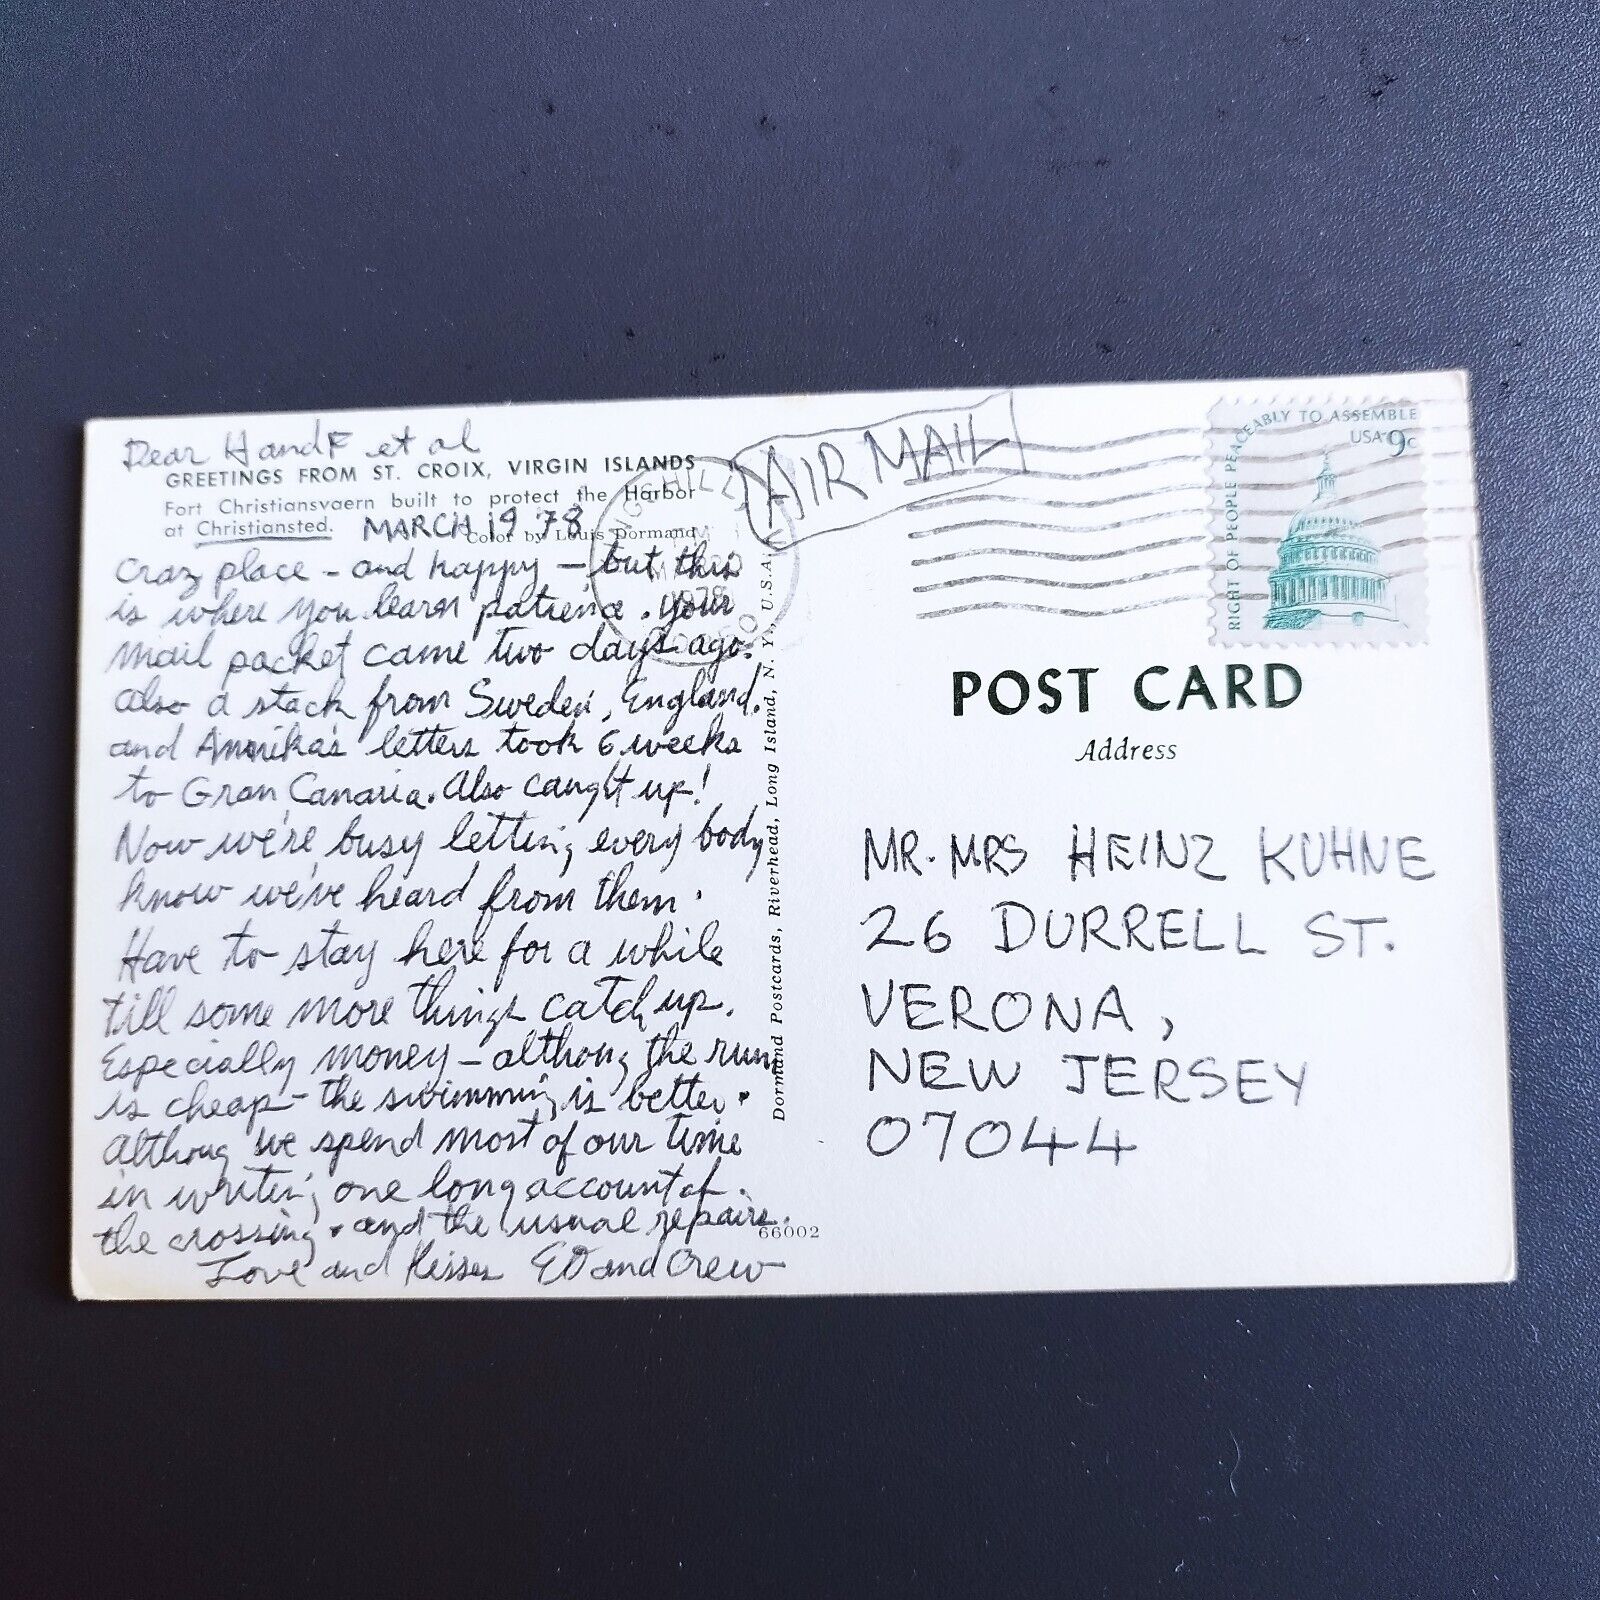 Dear H and F et al
GREETINGS FROM ST. CROIX, VIRGIN ISLANDS
Fort Christiansvaern built to protect the Harbor
at Christiansted.
MARCH 19 78
Color by Louis Dormand
Crazy place - and happy - but this
is where you learn patience. Your
mail packet came two days ago.
also a stack from Sweden, England.
and Annika's letters took 6 weeks
to Gran Canaria. Also caught up!
Now we're busy letting every body
know we've heard from them.
Have to stay here for a while
till some more things catch up.
Especially money - althoug the rum
is cheap - the swimming is better.
althoug we spend most of our time
in writing one long account of.
the crossing. and the usual repairs.
Love and Kisses ED and Crew
66002
Dormand Postcards, Riverhead, Long Island, N. Y., U.S.A.
1978
AIR MAIL
RIGHT OF PEOPLE PEACEABLY TO ASSEMBLE
USA 9c
POST CARD
Address
MR. MRS HEINZ KUHNE
26 DURRELL ST.
VERONA,
NEW JERSEY
07044